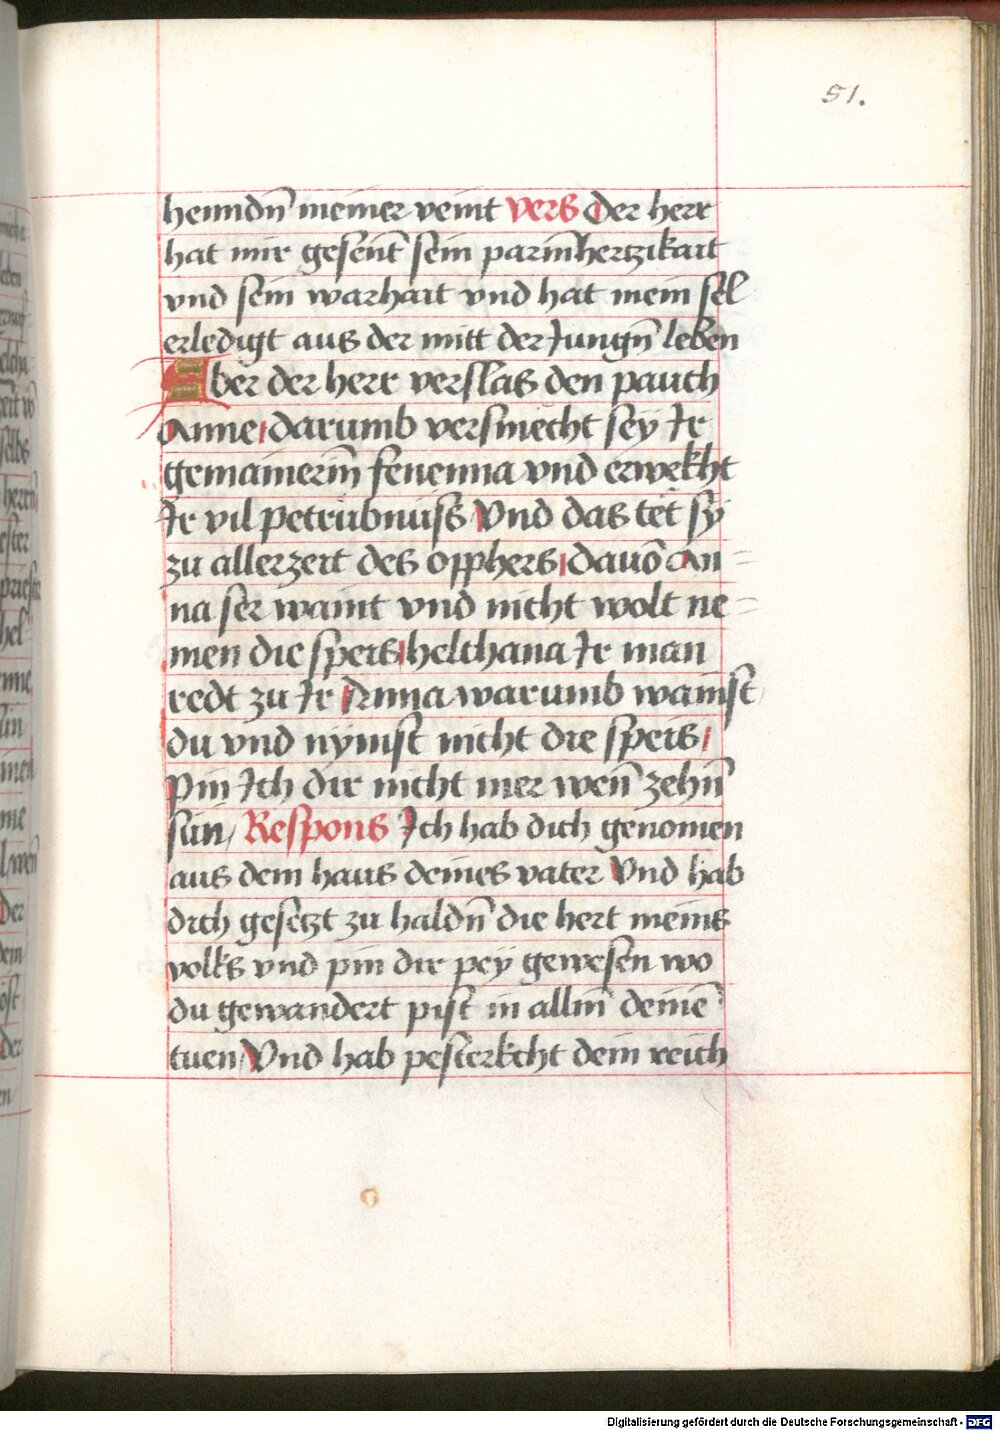 51.
henndn̄ meiner veint vers Der herr
hat mir gesent̄ sein parm̄hertzikait
vnd sein warhait vnd hat mein sel
erledigt aus der mitt der Jungn̄ leben
Aber der herr verslas den pauch
Anne darumb versmecht sey Ir
gemainerin̄ fenenna vnd erwekht
Ir vil petrübnüss Vnd das tet sÿ
zu allerzeit des opphers davō An=
na ser waint vnd nicht wolt ne=
men die speis helchana Ir man
redt zu Ir Anna warumb wainst
du vnd nÿmst nicht die speis
Pin Ich dir nicht mer wen̄ zehn̄
sün/ Respons Ich hab dich genomen
aus dem haus deines vater Vnd hab
dich gesetzt zu haldn̄ die hert meins
volks vnd pin dir peÿ gewesen wo
du gewandert pist in allm̄ deinē
tuen/ Vnd hab pesterkcht dein reich
Digitalisierung gefördert durch die Deutsche Forschungsgemeinschaft - DFG